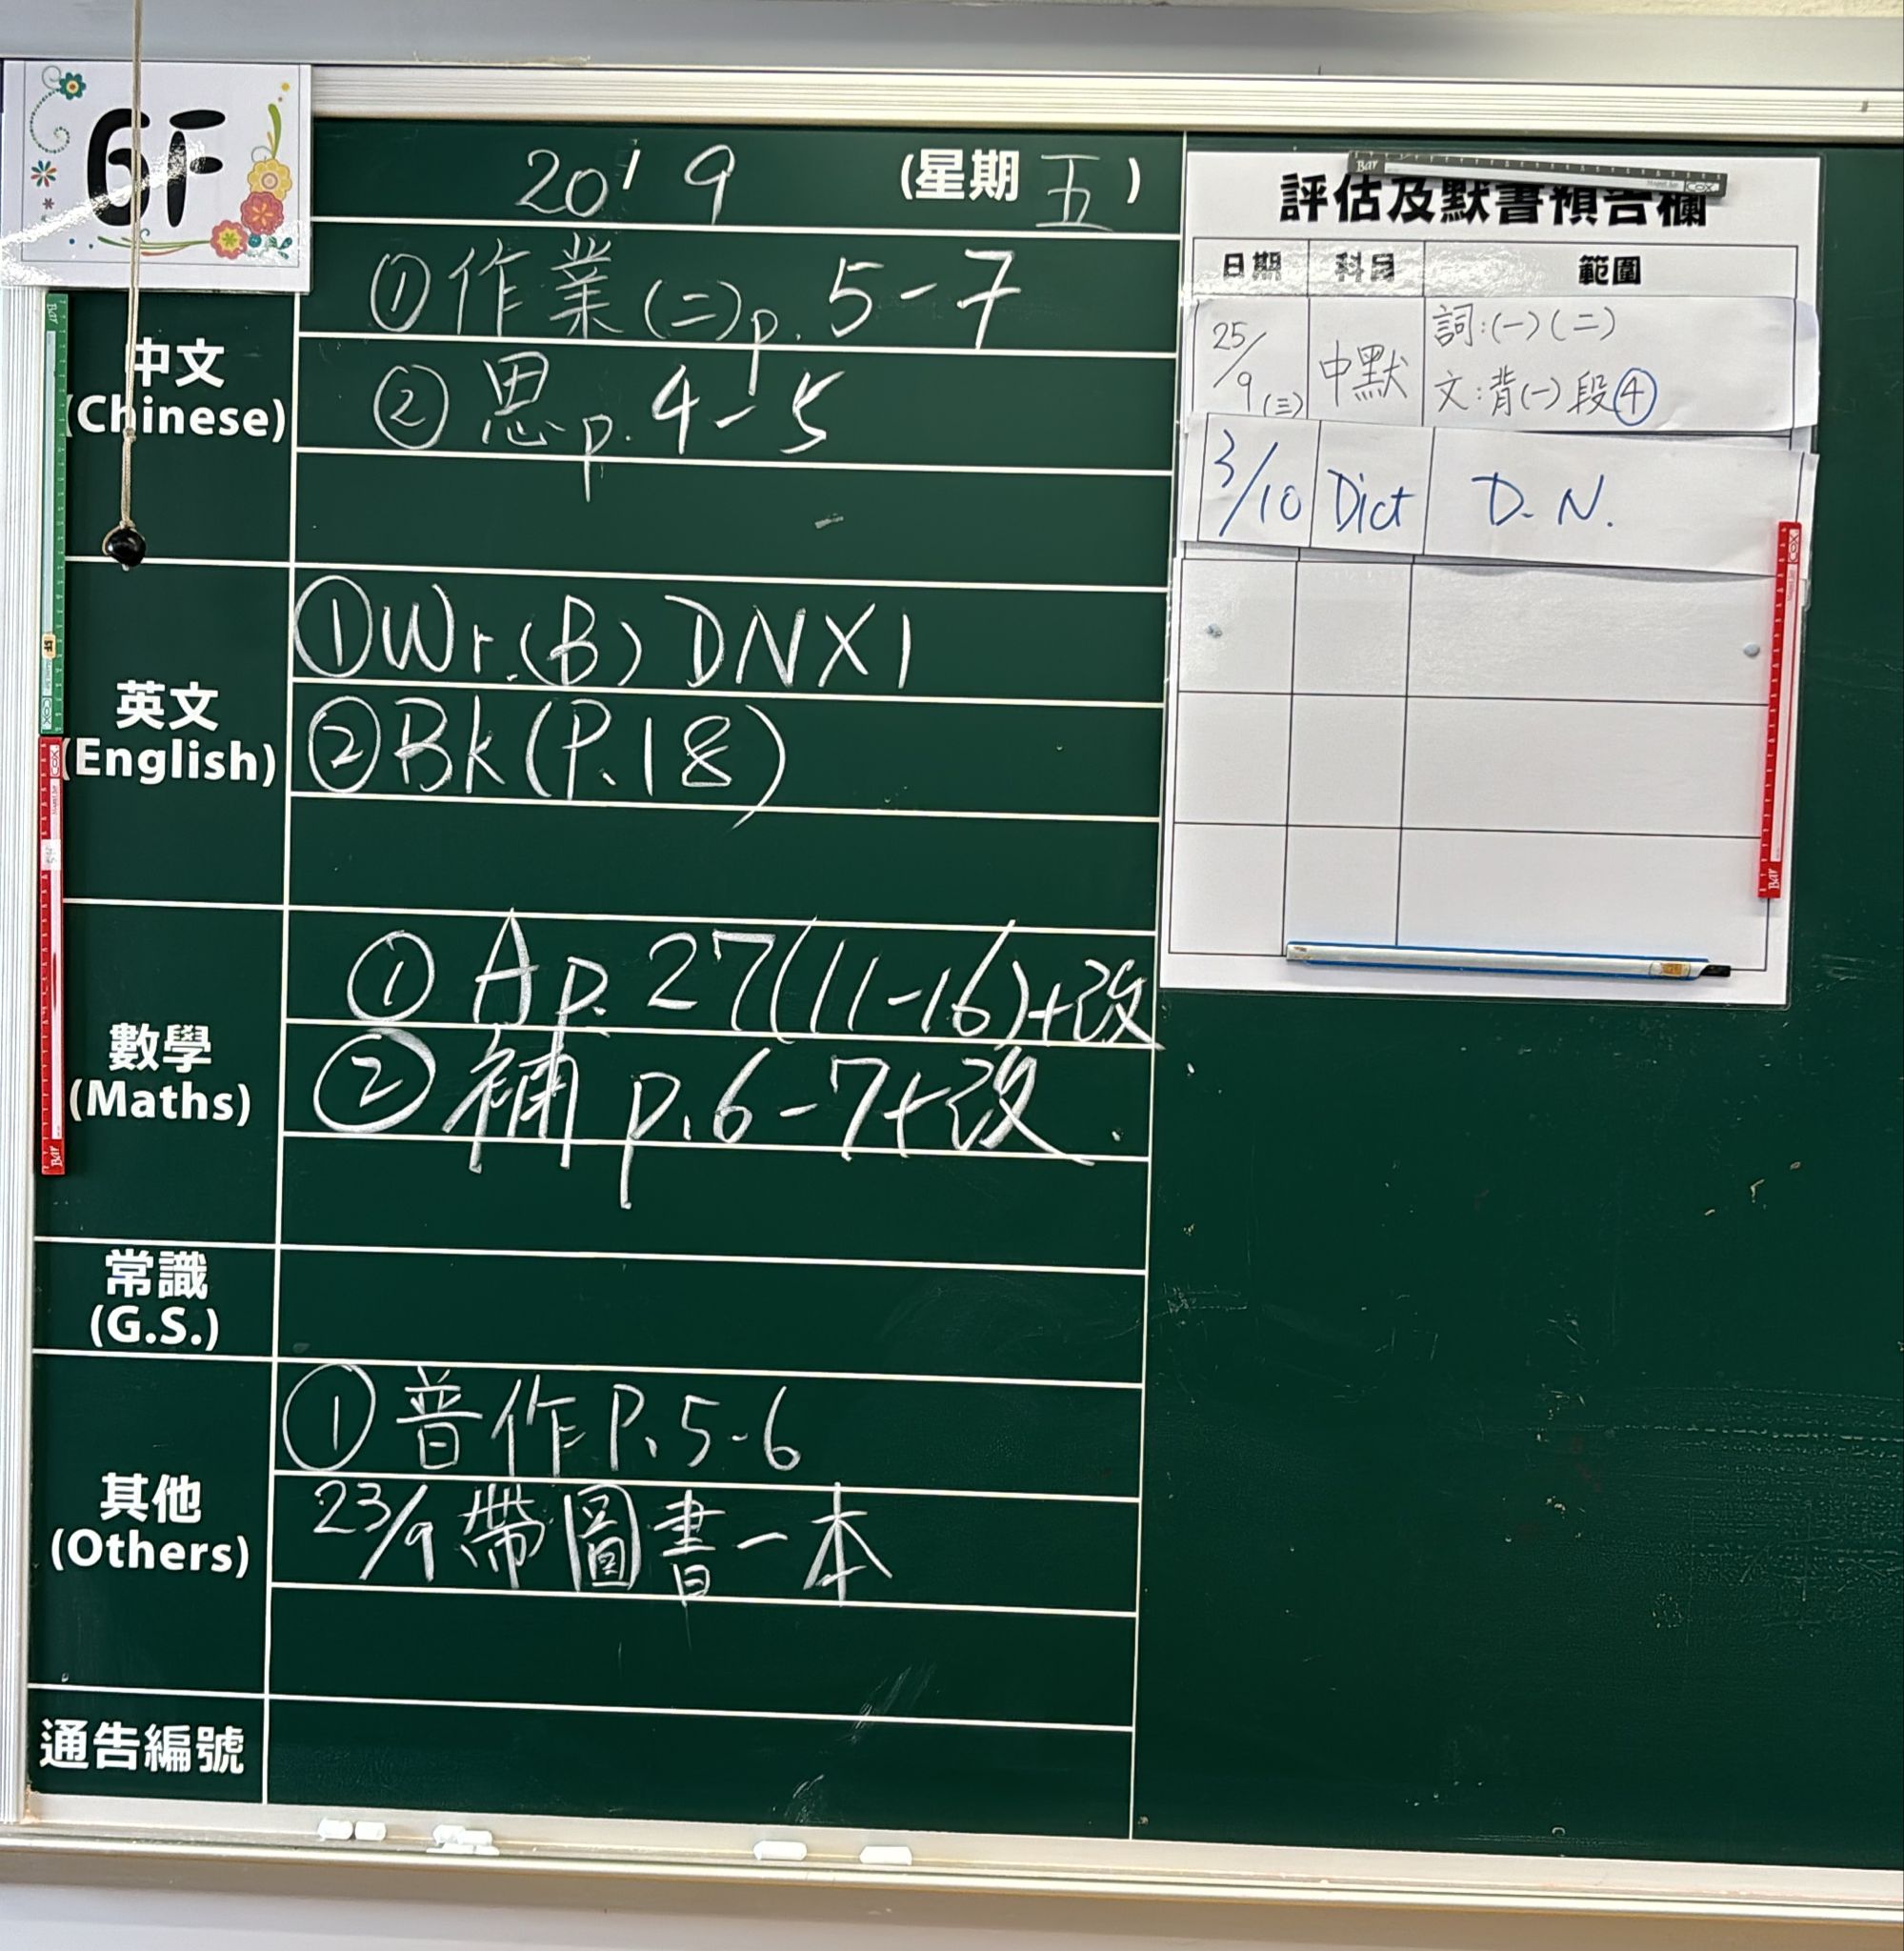 6F
20/9 (星期五)
中文
(Chinese)
①作業(二)p.5-7
②思p.4-5
英文
(English)
①Wr.(B) DNX1
②Bk(P.18)
數學
(Maths)
① A p.27(11-16)+改
② 補 p.6-7+改
常識
(G.S.)
其他
(Others)
① 普作P.5-6
23/9 帶圖書一本
通告編號
評估及默書預告欄
日期 科目 範圍
25/9(三) 中默 詞:(一)(二)
文:背(一)段④
3/10 Dict D.N.